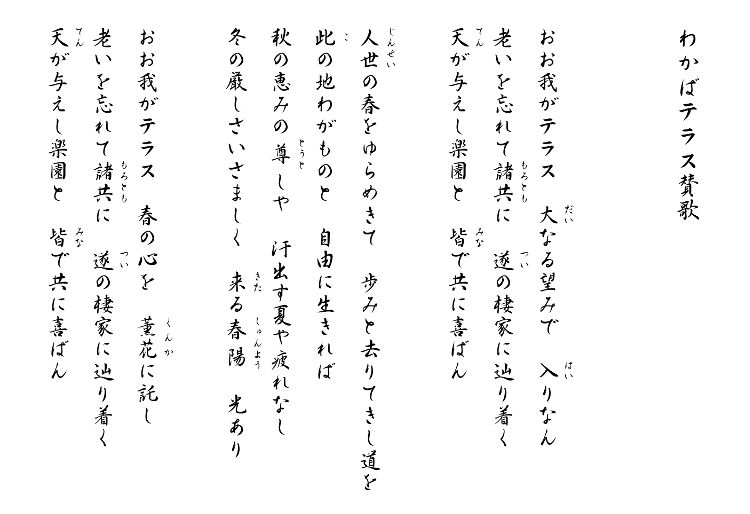 わかばテラス賛歌
おお我がテラス　大なる望みで　入りなん
老いを忘れて諸共に　遂の棲家に辿り着く
天が与えし楽園と　皆で共に喜ばん
人世の春をゆらめきて　歩みと去りてきし道を
此の地わがものと　自由に生きれば
秋の恵みの尊しや　汗出す夏や疲れなし
冬の厳しさいさましく　来る春陽　光あり
おお我がテラス　春の心を　薫花に託し
老いを忘れて諸共に　遂の棲家に辿り着く
天が与えし楽園と　皆で共に喜ばん